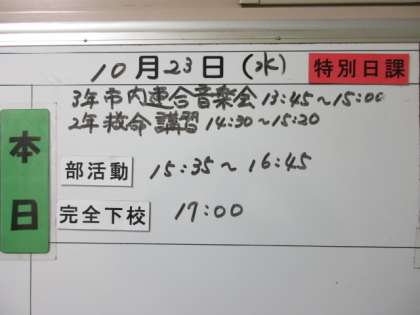 10月23日(水) 特別日課
3年市内連合音楽会 13:45~15:00
2年救命講習 14:30~15:20
本日
部活動 15:35~16:45
完全下校 17:00